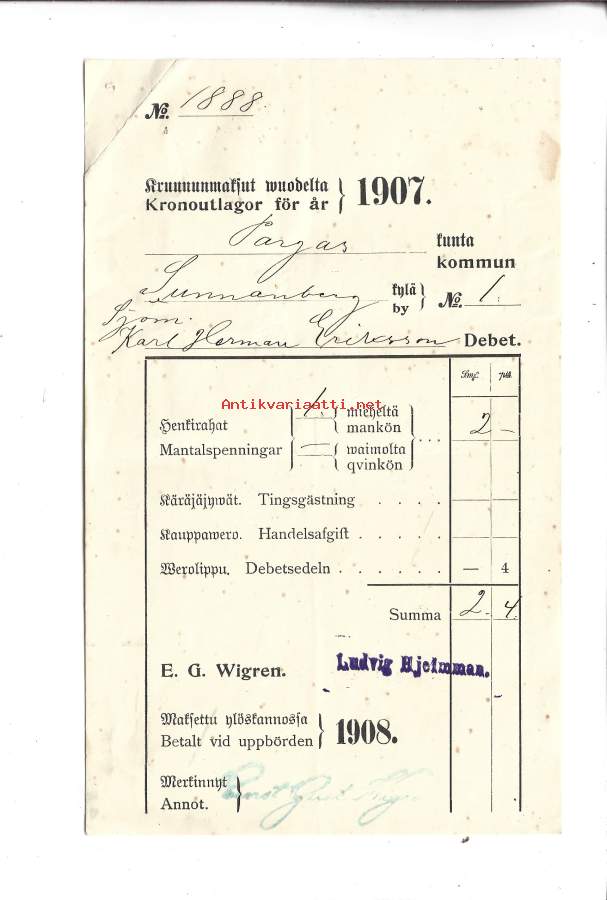 No. 1888.
Kruununmaksut wuodelta
Kronoutlagor för år
1907.
Pargas
kunta
kommun
Sunnanberg
kylä
by
No. 1.
Karl Herman Eriksson Debet.
Smf. pii.
Antikvariaatti.net
Henkirahat
Mantalspenningar
1. mieheltä
mankön
— waimolta
qvinkön
2 –
Käräjäjywät. Tingsgästning . . . .
Kauppawero. Handelsafgift . . . .
Werolippu. Debetsedeln . . . . . . — 4
Summa 2. 4.
E. G. Wigren.
Ludvig Hjelmman.
Maksettu ylöskannossa
Betalt vid uppbörden
1908.
Merkinnyt
Annot.